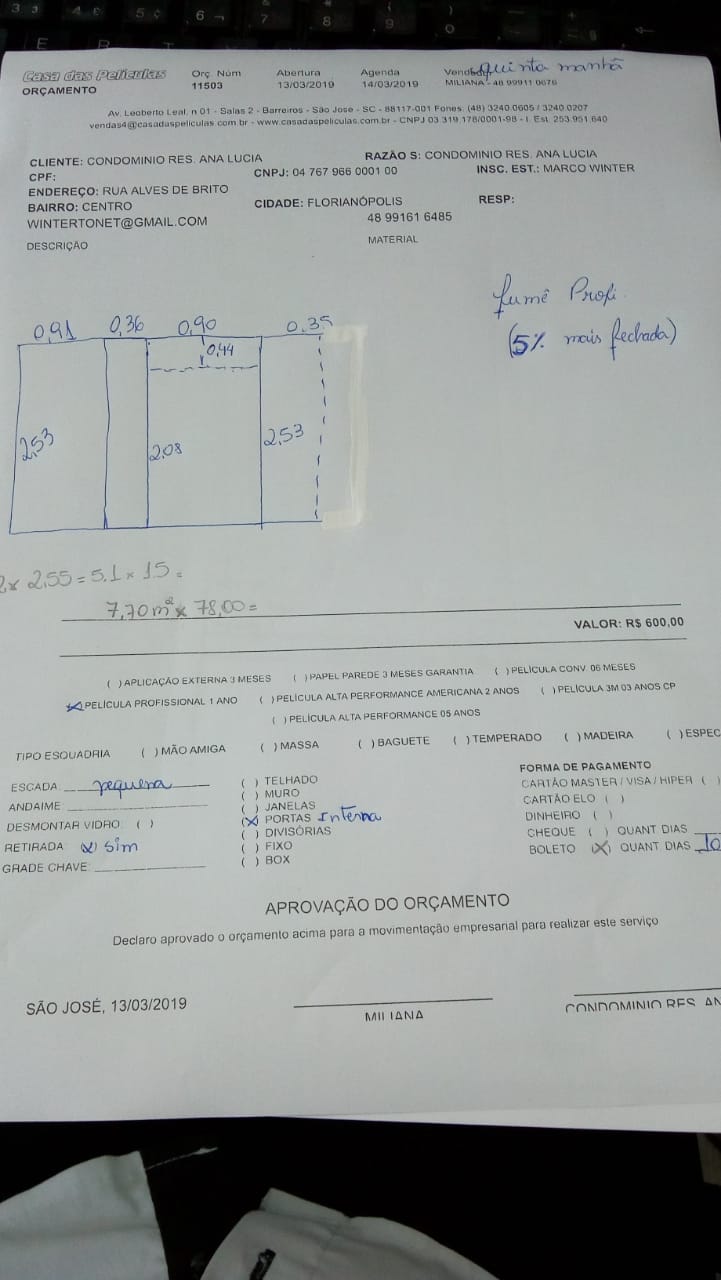 Casa das Películas
ORÇAMENTO
Orç. Núm
11503
Abertura
13/03/2019
Agenda
14/03/2019
quinta manhã
MILIANA - 48 99911 0676
Av. Leoberto Leal, n 01 - Salas 2 - Barreiros - São José - SC - 88117-001 Fones: (48) 3240 0605 / 3240 0207
vendas4@casadaspeliculas.com.br - www.casadaspeliculas.com.br - CNPJ 03 319 178/0001-98 - I. Est. 253.951.640
CLIENTE: CONDOMINIO RES. ANA LUCIA
RAZÃO S: CONDOMINIO RES. ANA LUCIA
CPF:
CNPJ: 04 767 966 0001 00
INSC. EST.: MARCO WINTER
ENDEREÇO: RUA ALVES DE BRITO
BAIRRO: CENTRO
CIDADE: FLORIANÓPOLIS
RESP:
WINTERTONET@GMAIL.COM
48 99161 6485
DESCRIÇÃO
MATERIAL
fumê Profi.
(5% mais fechada)
0,91 0,36 0,90 0,35
0,44
2,53 2,08 2,53
2x 2,55 = 5.1 x 1.5 =
7,70 m² x 78,00 =
VALOR: R$ 600,00
( ) APLICAÇÃO EXTERNA 3 MESES ( ) PAPEL PAREDE 3 MESES GARANTIA ( ) PELÍCULA CONV. 06 MESES
(x) PELÍCULA PROFISSIONAL 1 ANO ( ) PELÍCULA ALTA PERFORMANCE AMERICANA 2 ANOS ( ) PELÍCULA 3M 03 ANOS CP
( ) PELÍCULA ALTA PERFORMANCE 05 ANOS
TIPO ESQUADRIA ( ) MÃO AMIGA ( ) MASSA ( ) BAGUETE ( ) TEMPERADO ( ) MADEIRA ( ) ESPEC
ESCADA: pequena
ANDAIME:
DESMONTAR VIDRO: ( )
RETIRADA: (x) sim
GRADE CHAVE:
( ) TELHADO
( ) MURO
( ) JANELAS
(x) PORTAS Interna
( ) DIVISÓRIAS
( ) FIXO
( ) BOX
FORMA DE PAGAMENTO
CARTÃO MASTER / VISA / HIPER ( )
CARTÃO ELO ( )
DINHEIRO ( )
CHEQUE ( ) QUANT DIAS
BOLETO (X) QUANT DIAS 10
APROVAÇÃO DO ORÇAMENTO
Declaro aprovado o orçamento acima para a movimentação empresarial para realizar este serviço
SÃO JOSÉ, 13/03/2019
MILIANA
CONDOMINIO RES. AN